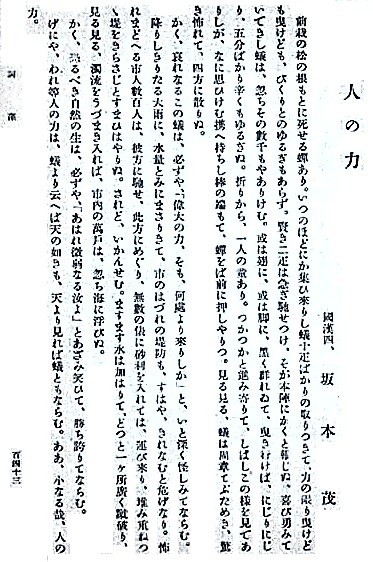 人の力
國漢四、坂本茂
前栽の松の根もとに死せる蟬あり。いつのほどにか集ひ來りし蟻十疋ばかりの取りつきて、力の限り曳けど
も曳けども、びくりとのゆるぎもあらず。賢き二疋は急ぎ馳せつけ、そが本陣にかくと報じぬ。喜び勇みて
いできし蟻は、忽ちその數千もやありけむ。或は翅に、或は脚に、黑く群れゐて、曳き行けば、にじりにじ
り、五分ばかり辛くもゆるぎぬ。折りから、一人の童あり。つかつかと進み寄りて、しばしこの樣を見てあ
りしが、なに思ひけむ携へ持ちし棒の端もて、蟬をば前に押しやりつ。見る見る、蟻は周章てふためき、驚
き怖れて、四方に散りぬ。
かく、哀れなるこの蟻は、必ずや「偉大の力、そも、何處より來りしか」と、いと深く怪しみてならむ。
降りしきりたる大雨に、水量とみにまさりきて、市のはづれの堤防も、すはや、きれなむと危げなり。怖
れまどへる市人數百人は、彼方に馳せ、此方にめぐり、無數の俵に砂利を入れては、運び來り、堆み重ねつ
ゝ堤をきらさじとすまひはやりぬ。されど、いかんせむ。ますます水は加はりて、どつと一ヶ所廣く蹴破り、
見る見る、濁流をうづまき入れば、市内の萬戸は、忽ち海に浮びぬ。
かく、恐るべき自然の生は、必ずや「あはれ微弱なる汝よ」とあざみ笑ひて、勝ち誇りてならむ。
げにや、われ等人の力は、蟻より云へば天の如きも、天より見れば蟻ともならむ。ああ、小なる哉、人の
力。
詞藻
百四十三